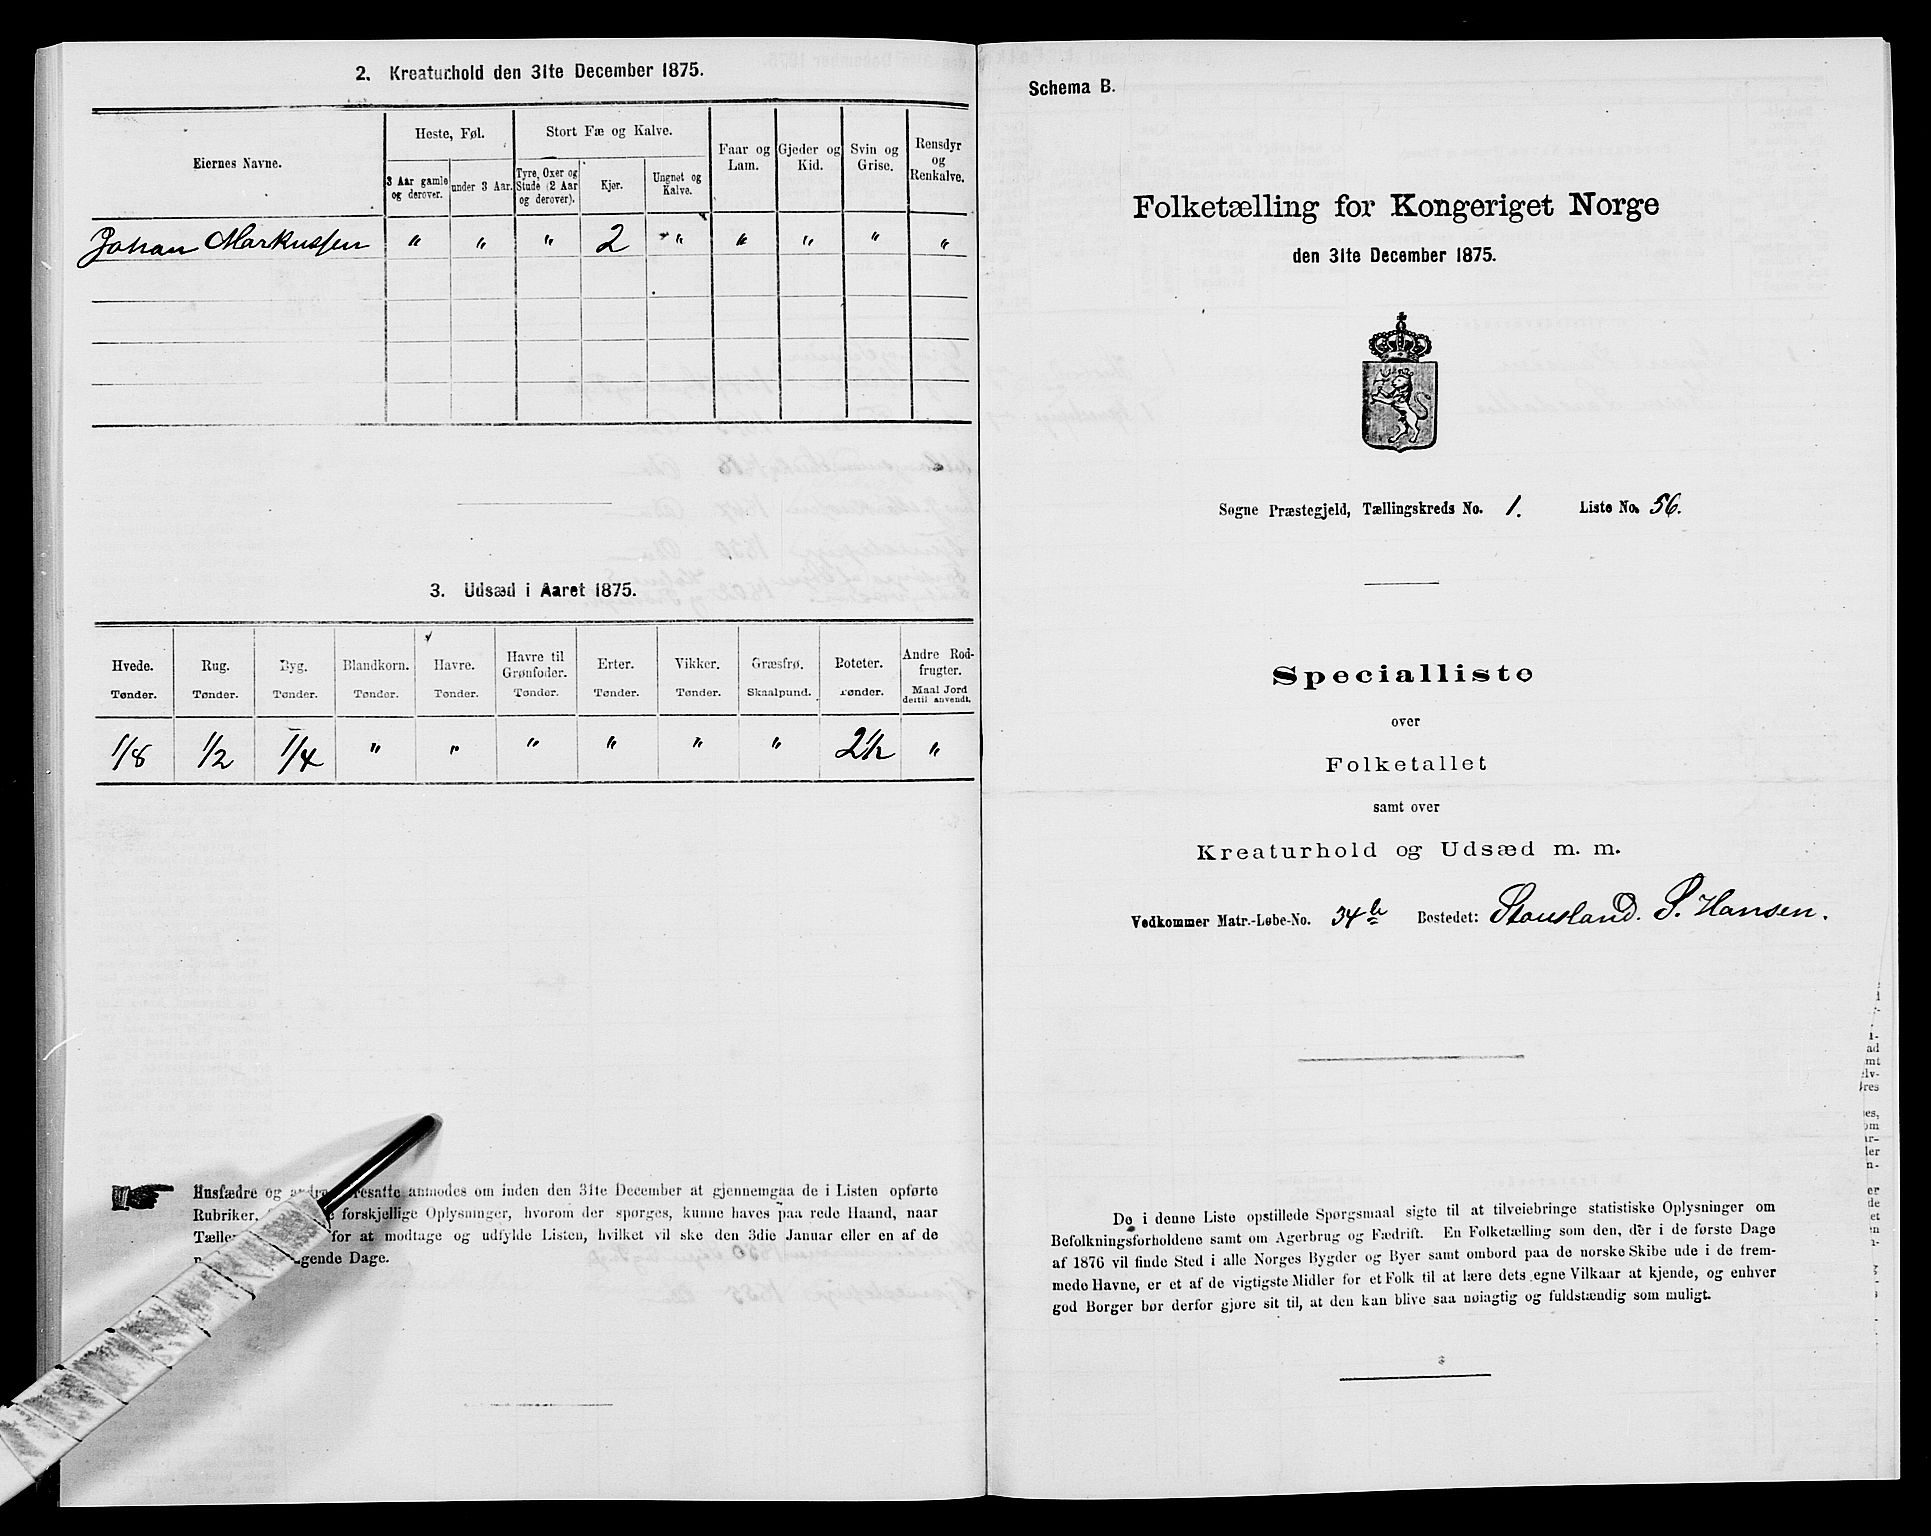 2. Kreaturhold den 31te December 1875.
Eiernes Navne.
Heste, Føl.
Stort Fæ og Kalve.
Faar og Lam.
Gjeder og Kid.
Svin og Grise.
Rensdyr og Renkalve.
3 Aar gamle og derover.
under 3 Aar.
Tyre, Oxer og Stude (2 Aar og derover).
Kjør.
Ungnet og Kalve.
Johan Markussen " " " 2 " " " " "
3. Udsæd i Aaret 1875.
Hvede. Rug. Byg. Blandkorn. Havre. Havre til Grønfoder. Erter. Vikker. Græsfrø. Poteter. Andre Rodfrugter.
Tønder. Tønder. Tønder. Tønder. Tønder. Tønder. Tønder. Tønder. Skaalpund. Tønder. Maal Jord dertil anvendt.
1/8 1/2 1/4 " " " " " " 2 1/2 "
Husfædre og andre Foresatte anmodes om inden den 31te December at gjennemgaa de i Listen opførte
Rubriker, forskjellige Oplysninger, hvorom der spørges, kunne haves paa rede Haand, naar
Tæller for at modtage og udfylde Listen, hvilket vil ske den 3die Januar eller en af de
gende Dage.
Schema B.
Folketælling for Kongeriget Norge
den 31te December 1875.
Søgne Præstegjeld, Tællingskreds No. 1. Liste No. 56.
Specialliste
over
Folketallet
samt over
Kreaturhold og Udsæd m. m.
Vedkommer Matr.-Løbe-No. 34 b Bostedet: Stousland. P. Hansen.
De i denne Liste opstillede Spørgsmaal sigte til at tilveiebringe statistiske Oplysninger om
Befolkningsforholdene samt om Agerbrug og Fædrift. En Folketælling som den, der i de første Dage
af 1876 vil finde Sted i alle Norges Bygder og Byer samt ombord paa de norske Skibe ude i de frem-
mede Havne, er et af de vigtigste Midler for et Folk til at lære dets egne Vilkaar at kjende, og enhver
god Borger bør derfor gjøre sit til, at den kan blive saa nøiagtig og fuldstændig som muligt.